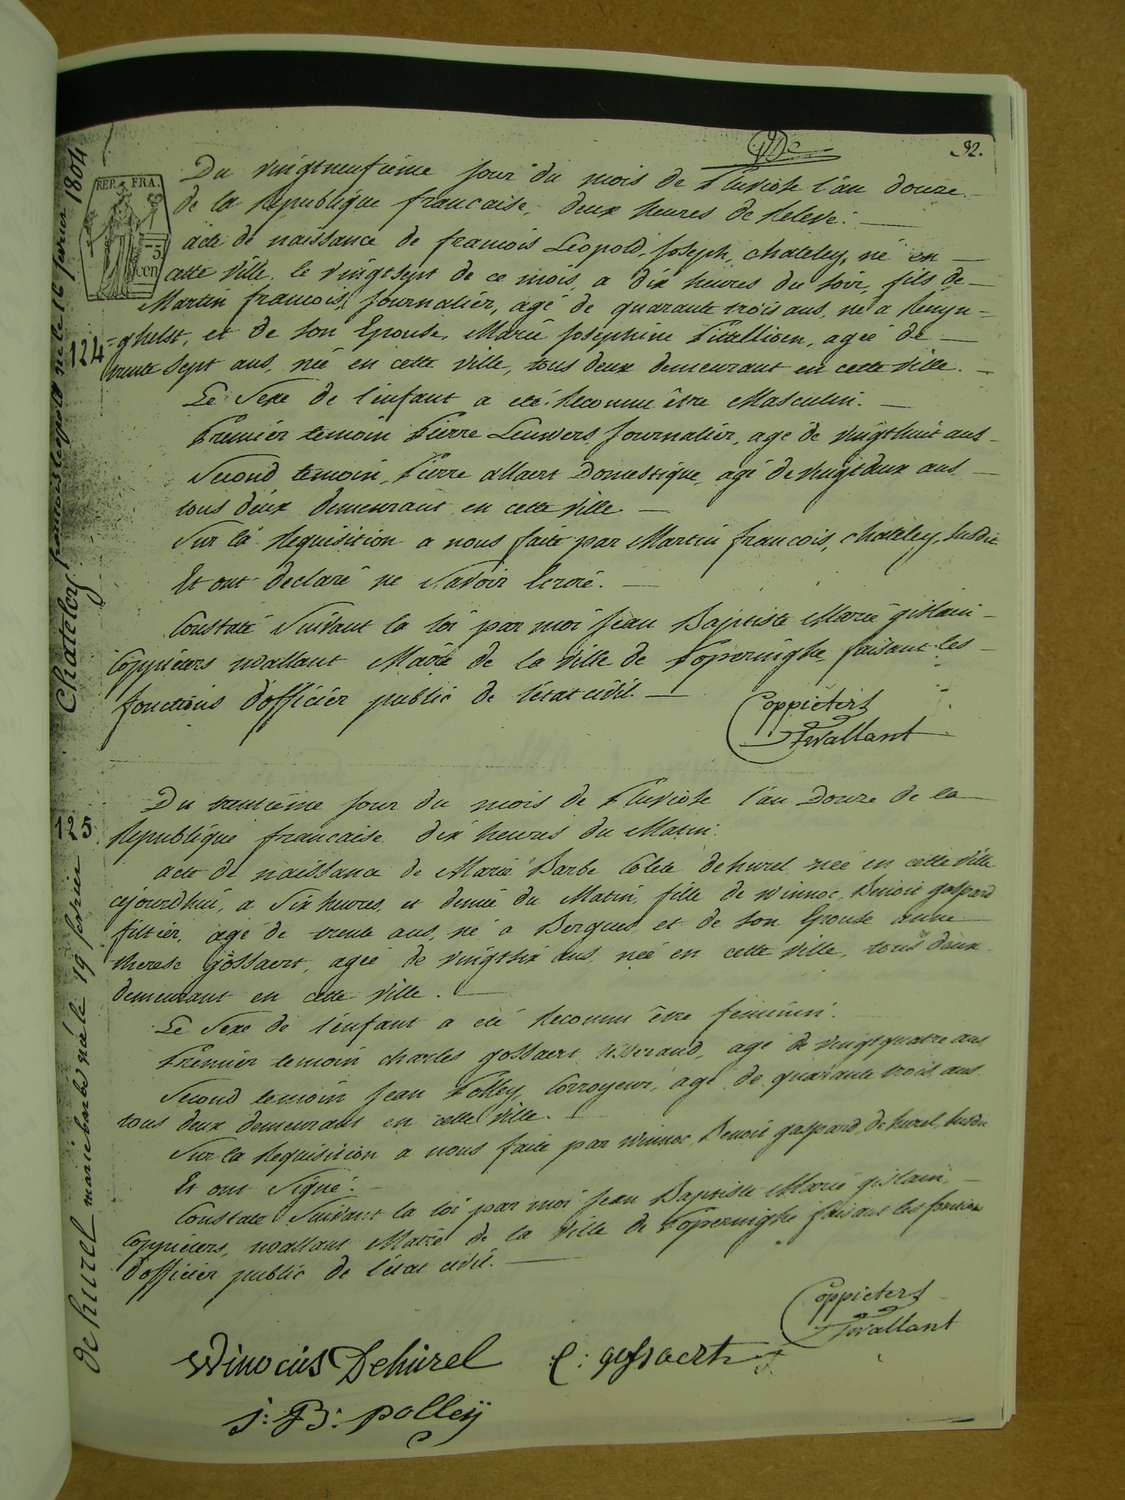 92.
REP. FRA.
5
cen
Du vingtneufieme jour du mois de Pluviose l'an douze
de la Republique francaise, deux heures de Relevé.
acte de naissance de francois Leopold, Joseph, chateley, né en
cette ville, le vingtsept de ce mois, a dix heures du soir, fils de
Martin francois, Journalier, agé de quarante trois ans, né a Renyn=
=ghelst, et de son Epouse, Marie Josephine, agée de
trente sept ans, née en cette ville, tous deux demeurant en cette ville.
Le Sexe de l'enfant a eté Reconnu être Masculin.
Premier temoin Pierre Leuwers Journalier, agé de vingthuit ans
Second temoin, Pierre allaert Domestique, agé de vingtdeux ans
tous deux demeurant en cette ville
Sur la Requisition a nous faite par Martin francois, chateley, susdit
Et ont declaré ne Savoir Ecrire.
Constaté Suivant la loi par moi Jean Baptiste Marie gislain
Coppieters wallant Maire de la ville de Poperinghe, faisant les
fonctions d'officier public de l'état civil.
Coppieters
wallant
124
Chateley francois leopold né le 16 fevrier 1804
125
Du trentieme jour du mois de Pluviose l'an Douze de la
Republique francaise dix heures du Matin.
acte de naissance de Marie Barbe Colete dehurel née en cette ville
ajourdhui, a Six heures et demie du Matin, fille de winnoc, Benoit gaspard
filtier, agé de trente ans, né a Bergues et de son Epouse anne
therese Gossaert, agée de vingtsix ans, née en cette ville, tous deux
demeurant en cette ville.
Le Sexe de l'enfant a eté Reconnu être feminin.
Premier temoin charles gossaert tisserand, agé de vingtquatre ans
Second temoin Jean Polley, Corroyeur, agé de quarante trois ans
tous deux demeurant en cette ville.
Sur la Requisition a nous faite par winnoc, Benoit gaspard, de hurel, susdit
Et ont Signé.
Constaté Suivant la loi par moi Jean Baptiste Marie gislain,
Coppieters, wallant Maire de la ville de Poperinghe faisant les fonctions
d'officier public de l'état civil.
de hurel marie barbe née le 19 fevrier
Coppieters
wallant
Winocus Dehurel
C: gossaert
j: B: polleÿ